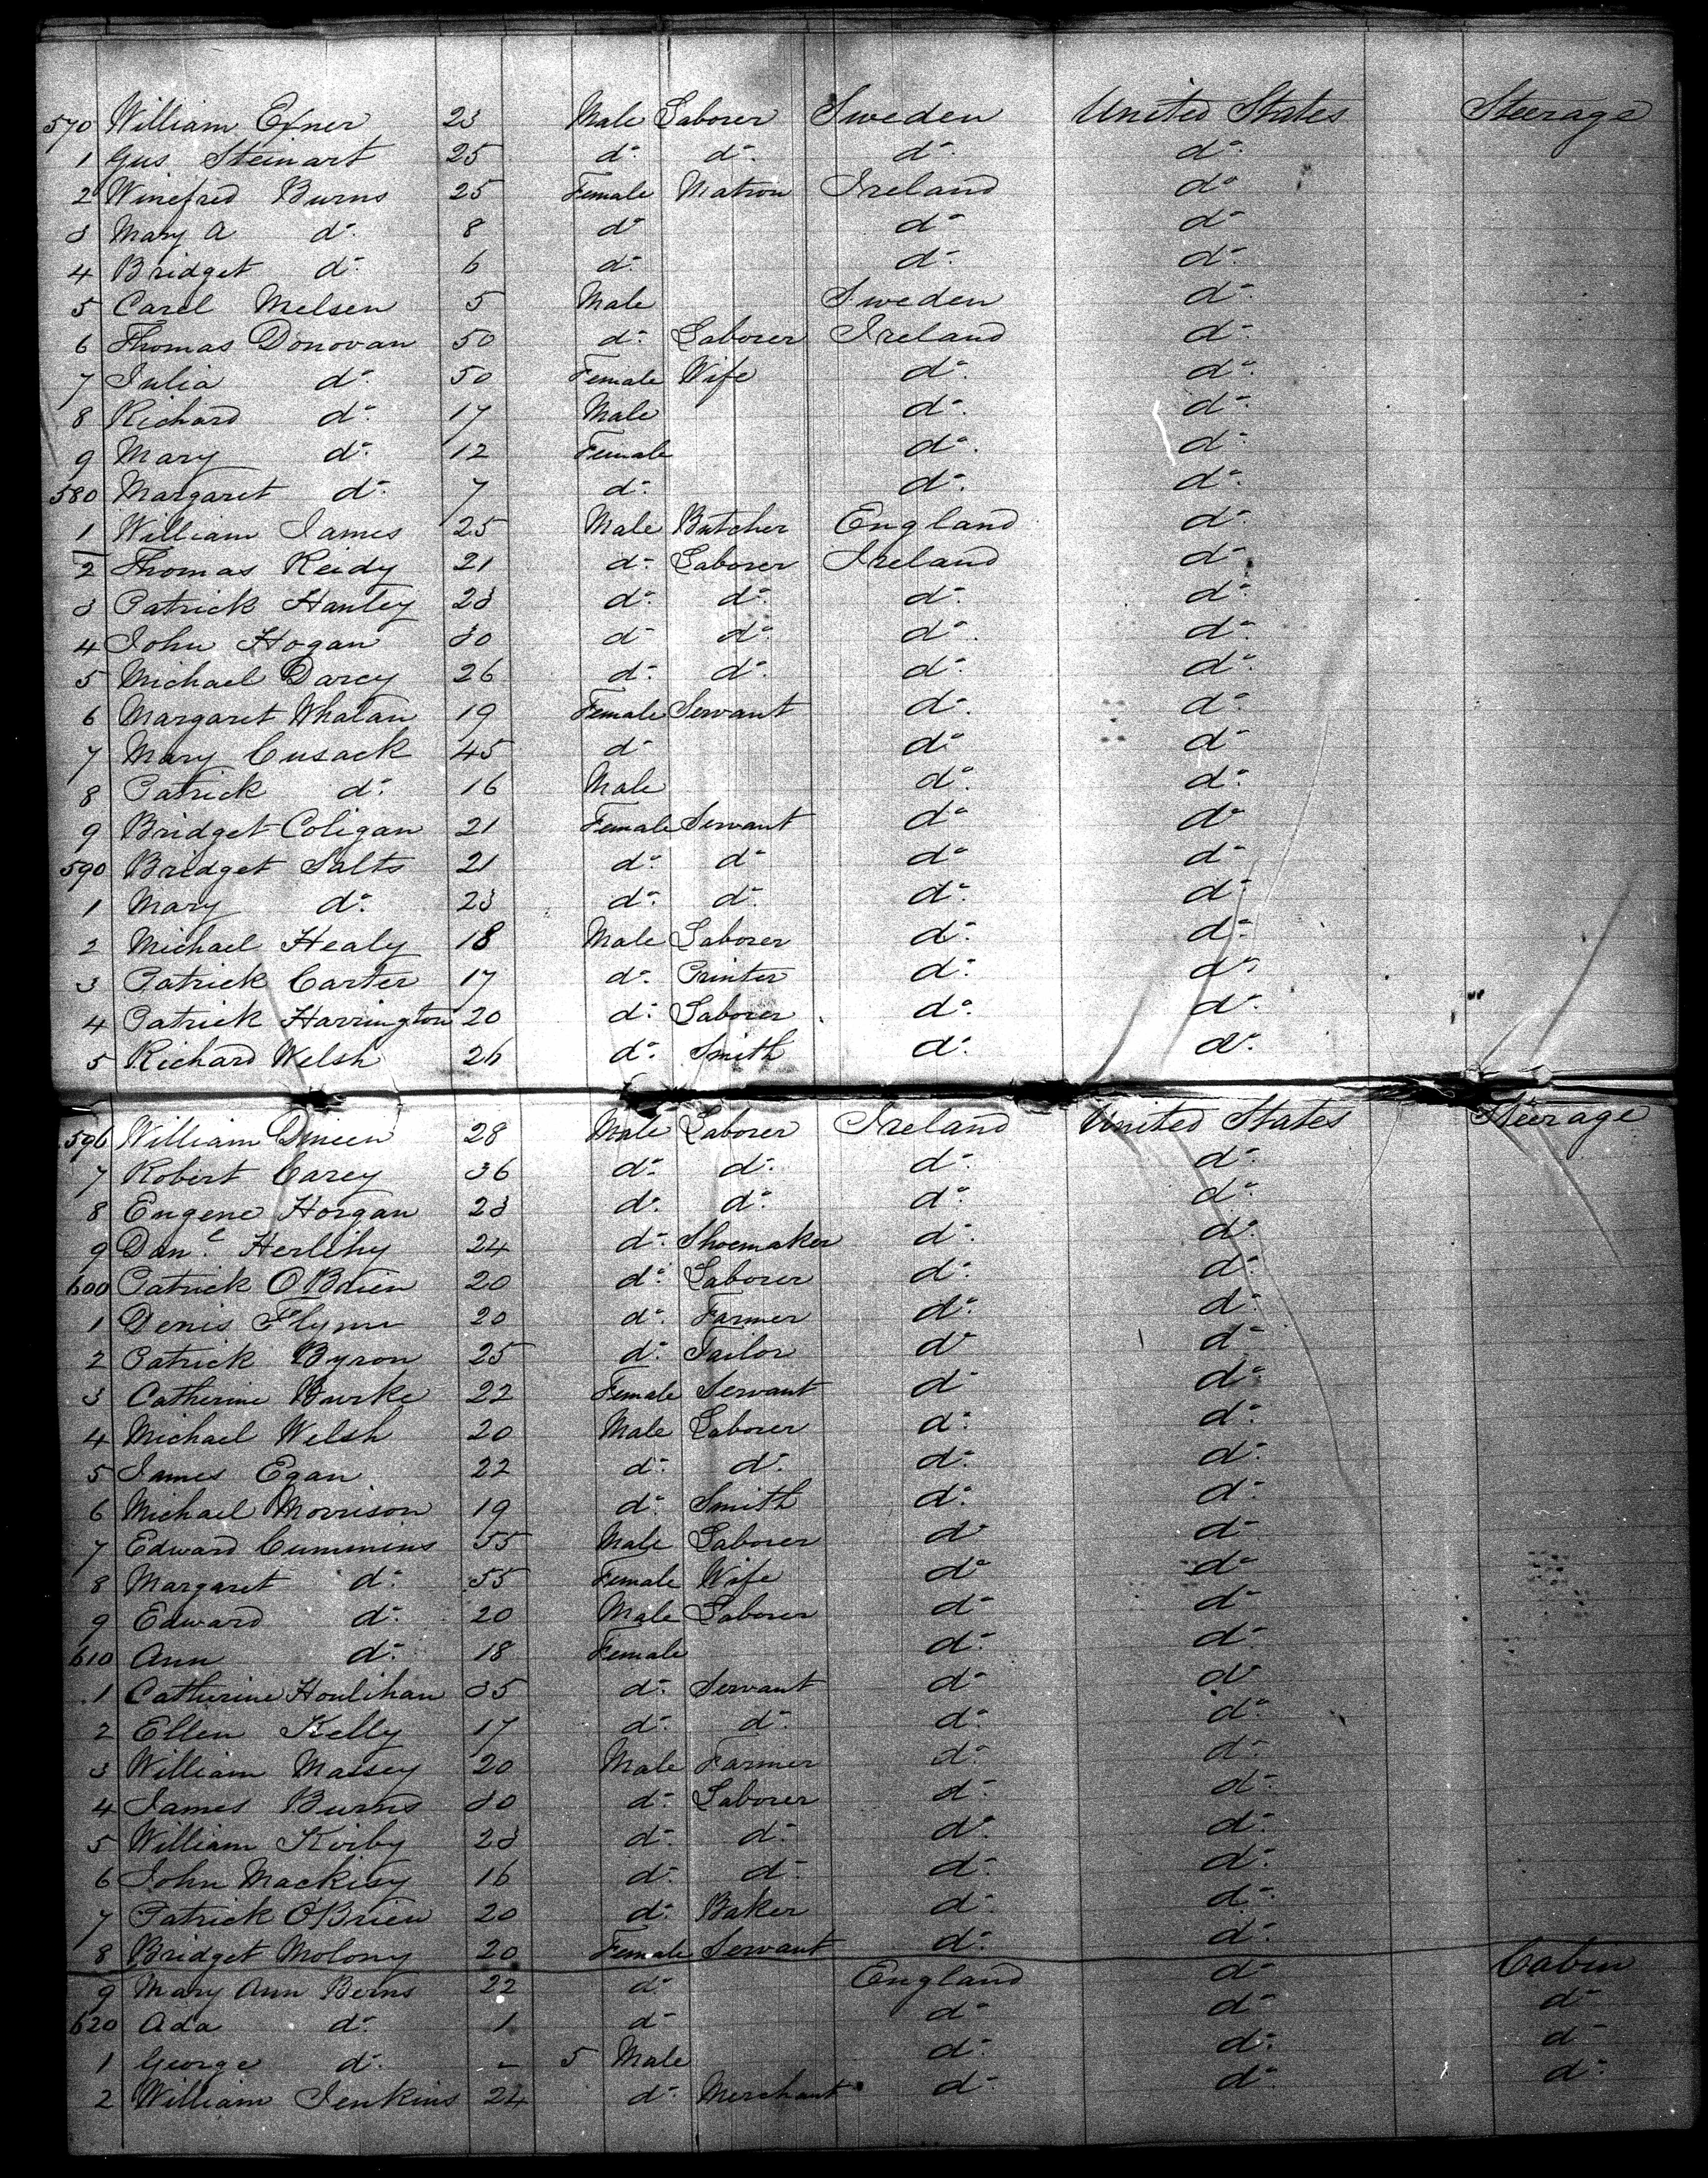 570 William Exner 23 Male Laborer Sweden United States Steerage
1 Gus Steinart 25 do do do do
2 Winefred Burns 25 Female Matron Ireland do
3 Mary A do 8 do do do
4 Bridget do 6 do do do
5 Carel Melsen 5 Male Sweden do
6 Thomas Donovan 50 do Laborer Ireland do
7 Julia do 50 Female Wife do do
8 Richard do 17 Male do do
9 Mary do 12 Female do do
580 Margaret do 7 do do do
1 William James 25 Male Butcher England do
2 Thomas Reidy 21 do Laborer Ireland do
3 Patrick Hanley 23 do do do do
4 John Hogan 30 do do do do
5 Michael Darcy 26 do do do do
6 Margaret Whalan 19 Female Servant do do
7 Mary Cusack 45 do do do
8 Patrick do 16 Male do do
9 Bridget Coligan 21 Female Servant do do
590 Bridget Salts 21 do do do do
1 Mary do 23 do do do do
2 Michael Healy 18 Male Laborer do do
3 Patrick Carter 17 do Printer do do
4 Patrick Harrington 20 do Laborer do do
5 Richard Welsh 26 do Smith do do
596 William Dineen 28 Male Laborer Ireland United States Steerage
7 Robert Carey 36 do do do do
8 Eugene Horgan 23 do do do do
9 Danl Herlihy 24 do Shoemaker do do
600 Patrick O'Brien 20 do Laborer do do
1 Denis Flynn 20 do Farmer do do
2 Patrick Byron 25 do Tailor do do
3 Catherine Burke 22 Female Servant do do
4 Michael Welsh 20 Male Laborer do do
5 James Egan 22 do do do do
6 Michael Morrison 19 do Smith do do
7 Edward Cummins 55 Male Laborer do do
8 Margaret do 55 Female Wife do do
9 Edward do 20 Male Laborer do do
610 Ann do 18 Female do do
1 Catherine Houlihan 35 do Servant do do
2 Ellen Kelly 17 do do do do
3 William Massey 20 Male Farmer do do
4 James Burns 30 do Laborer do do
5 William Kirby 23 do do do do
6 John Mackisy 16 do do do do
7 Patrick O'Brien 20 do Baker do do
8 Bridget Molony 20 Female Servant do do
9 Mary Ann Berns 22 do England do Cabin
620 Ada do 1 do do do do
1 George do - 5 Male do do do
2 William Jenkins 24 do Merchant do do do